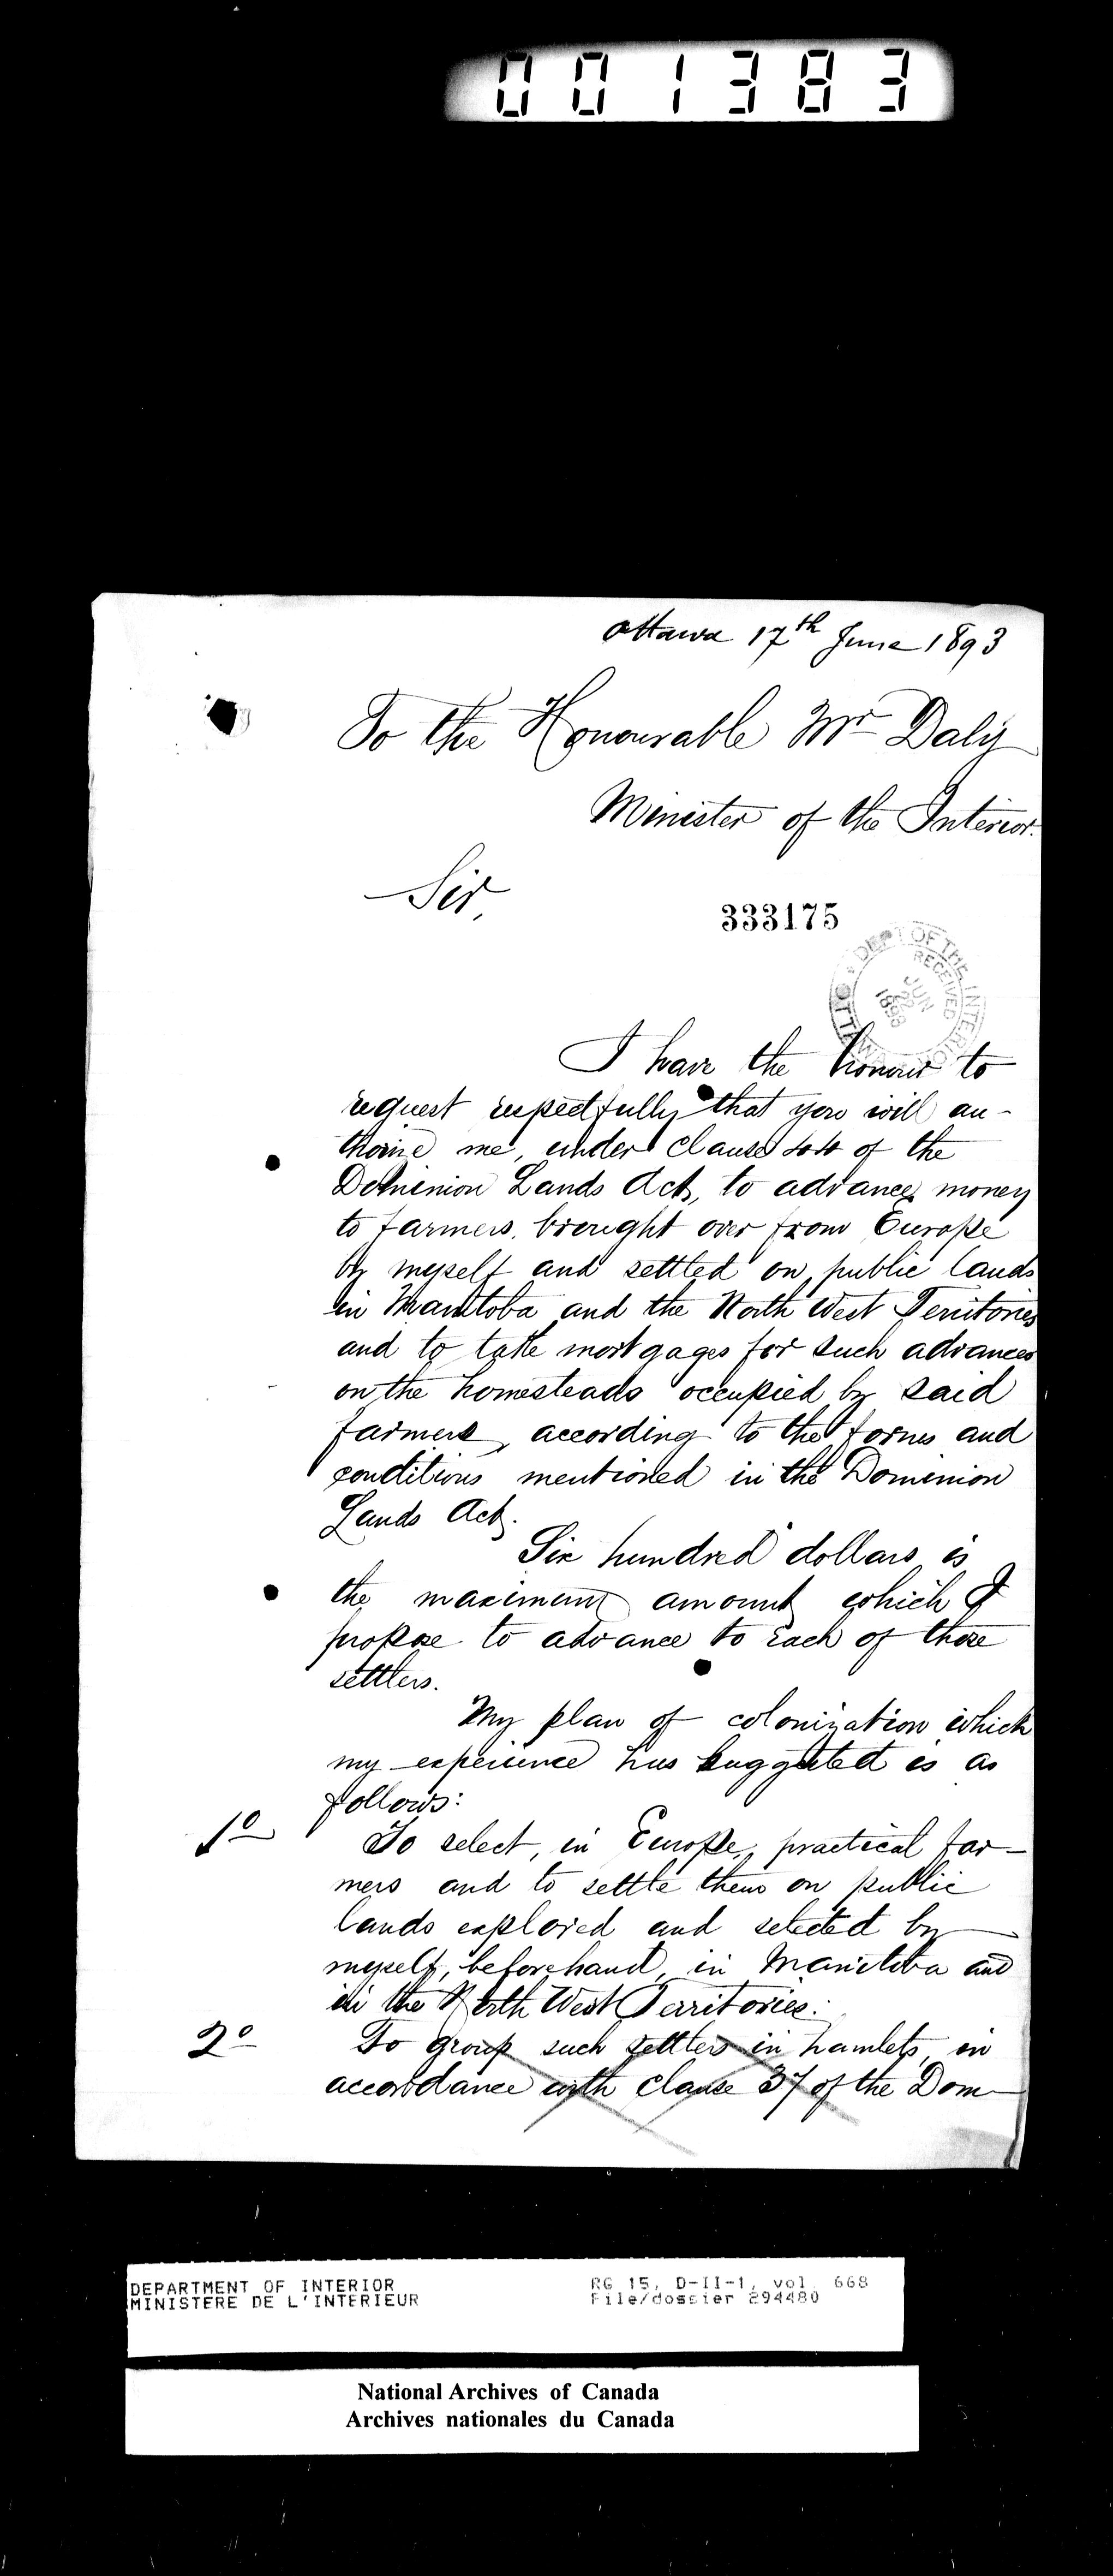 001383
Ottawa 17th June 1893
To the Honourable Mr Daly
Minister of the Interior.
Sir,
333175
DEPT OF THE INTERIOR
RECEIVED
JUN
1893
I have the honour to
request respectfully that you will au-
thorize me, under clause 44 of the
Dominion Lands Act, to advance money
to farmers, brought over from Europe
by myself and settled on public lands
in Manitoba and the North West Territories
and to take mortgages for such advances
on the homesteads occupied by said
farmers, according to the forms and
conditions mentioned in the Dominion
Lands Act.
Six hundred dollars is
the maximum amount which I
propose to advance to each of those
settlers.
My plan of colonization which
my experience has suggested is as
follows:
1o
To select, in Europe, practical far-
mers and to settle them on public
lands explored and selected by
myself, beforehand, in Manitoba and
in the North West Territories.
2o
To group such settlers in hamlets, in
accordance with clause 37 of the Dom-
DEPARTMENT OF INTERIOR
MINISTERE DE L'INTERIEUR
RG 15, D-II-1, vol. 668
File/dossier 294480
National Archives of Canada
Archives nationales du Canada